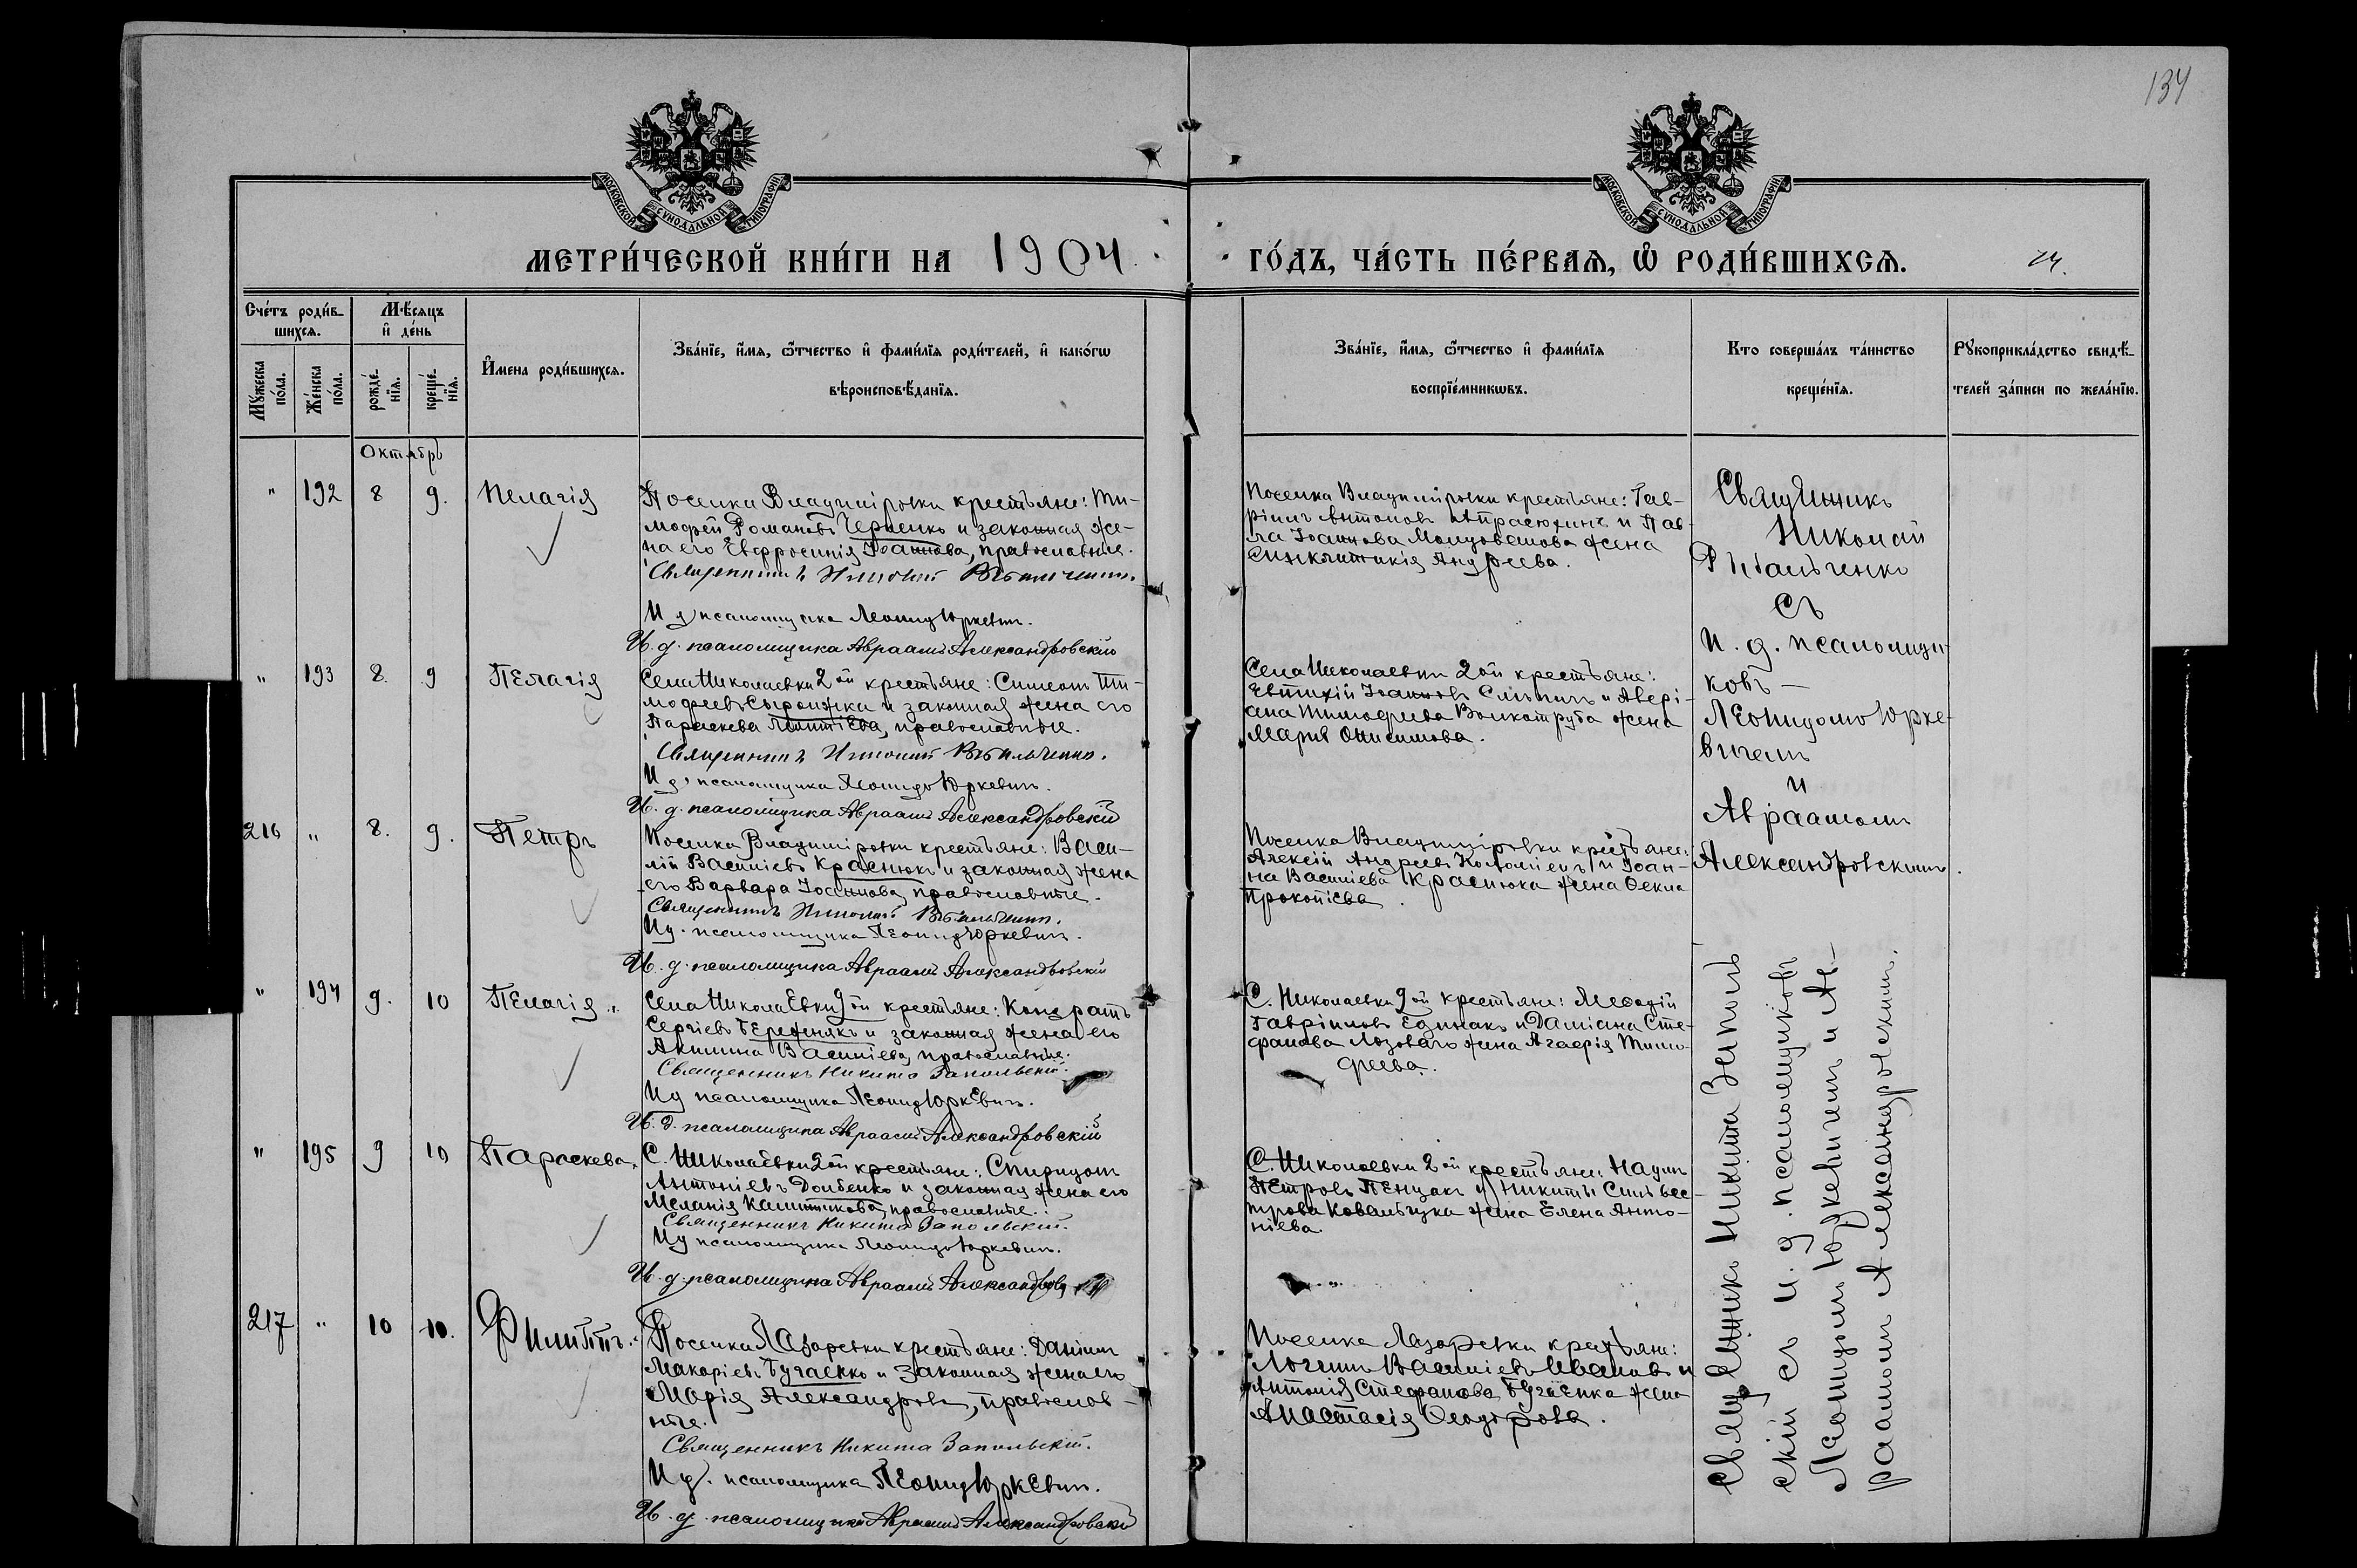 134
МОСКОВСКОЙ СУНОДАЛЬНОЙ ТИПОГРАФІИ
МОСКОВСКОЙ СУНОДАЛЬНОЙ ТИПОГРАФІИ
МЕТРИ́ЧЕСКОЙ КНИ́ГИ НА 1904
ГО́ДЪ, ЧА́СТЬ ПЕ́РВАЯ, Ѡ РОДИ́ВШИХСЯ.
24.
Сче́тъ роди́в-
шихсѧ.
Мѣ́сѧцъ
и҆ де́нь
Мꙋ́жеска
по́ла.
Же́нска
по́ла.
рожде́-
нїѧ.
креще́-
нїѧ.
И҆мена роди́вшихсѧ.
Зва́нїе, и҆́мѧ, ѻ҆́тчество и҆ фами́лїѧ роди́телей, и҆ како́гѡ
вѣроисповѣ́данїѧ.
Зва́нїе, и҆́мѧ, ѻ҆́тчество и҆ фами́лїѧ
воспрїе́мникѡвъ.
Кто соверша́лъ та́инство
креще́нїѧ.
Рꙋкоприкла́дство свидѣ́-
телей за́писи по жела́нїю.
Октябрь
" 192 8 9. Пелагія
Поселка Владиміровки крестьяне: Ти-
мофей Романовъ Черненко и законная же-
на его Евфросинія Іоаннова, православные.
Священникъ Николай Рыбальченко.
И д псаломщика Леонид Юркевич.
И. д. псаломщика Авраамъ Александровскій
Поселка Владиміровки крестьяне: Гав-
ріилъ Антоновъ и Пав-
ла Іоаннова жена
Синклитикія Андреева.
Священникъ
Николай
Рыбальченко
съ
и. д. псаломщи-
ковъ —
Леонидомъ Юрке-
вичемъ
и
Авраамомъ
Александровскимъ.
" 193 8. 9 Пелагія
Села Николаевки 2ой крестьяне: Симеонъ Ти-
мофеевъ Сыроижка и законная жена его
Параскева православные.
Священникъ Николай Рыбальченко.
И д. псаломщика Леонидъ Юркевич.
И. д. псаломщика Авраамъ Александровскій
Села Николаевки 2ой крестьяне:
Евтихій Іоанновъ и Авері-
ана Тимофеева Волкотруба жена
Марія Онисимова.
216 " 8. 9. Петръ
Поселка Владиміровки крестьяне: Васи-
лій Василіевъ Краснюкъ и законная жена
его Варвара Іоаннова, православные.
Священникъ Николай Рыбальченко.
И д. псаломщика Леонид Юркевич.
И. д. псаломщика Авраамъ Александровскій
Поселка Владиміровки крестьяне:
Алексій Андреевъ Коломіецъ и Іоан-
на Василіева Краснюка жена Ѳекла
Прокопіева.
" 194 9. 10 Пелагія.
Села Николаевки 2ой крестьяне: Кондратъ
Сергіевъ Бережнякъ и законная жена его
Акилина Василіева, православные.
Священникъ Никита Запольскій.
И д псаломщика Леонид Юркевич.
И. д. псаломщика Авраамъ Александровскій
С. Николаевки 2ой крестьяне: Меѳодій
Гавріиловъ Единакъ и Даміана Сте-
фанова Лозоваго жена Агаѳія Тимо-
феева.
" 195 9 10 Параскева.
С. Николаевки 2ой крестьяне: Спиридонъ
Антоніевъ Долбенко и законная жена его
Меланія Каллиникова, православные.
Священникъ Никита Запольскій.
И д псаломщика Леонидъ Юркевич.
И. д. псаломщика Авраамъ
С. Николаевки 2ой крестьяне: Наумъ
Петровъ Пенцакъ и Никиты Сильвес-
трова Ковальчука жена Елена Анто-
ніева.
217 " 10 10. Филиппъ.
Поселка Лазаревки крестьяне: Даніилъ
Макаріевъ Бугаенко и законная жена его
Марія Александрова, православ-
ные.
Священникъ Никита Запольскій.
И д. псаломщика Леонид Юркевич.
И. д. псаломщика Авраамъ Александровскій
Поселка Лазаревки крестьяне:
Логгинъ Василіевъ Ивановъ и
Антонія Стефанова Бугаенка жена
Анастасія Ѳеодорова.
Священникъ Никита Заполь-
скій съ и. д. псаломщиковъ
Леонидомъ Юркевичемъ и Ав-
раамомъ Александровскимъ.